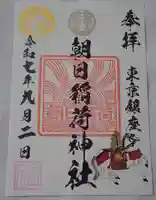 奉拝
東京鎮座
朝日稲荷神社
令和七年九月二日